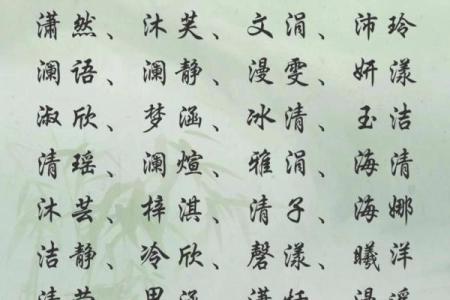 潇然、沐芙、文涓、沛玲
澜语、澜静、漫雯、妍漾
淑欣、梦涵、冰清、玉洁
清瑶、澜煊、雅涓、海清
沐芸、梓淇、清子、海娜
洁静、冷欣、磬漾、曦洋